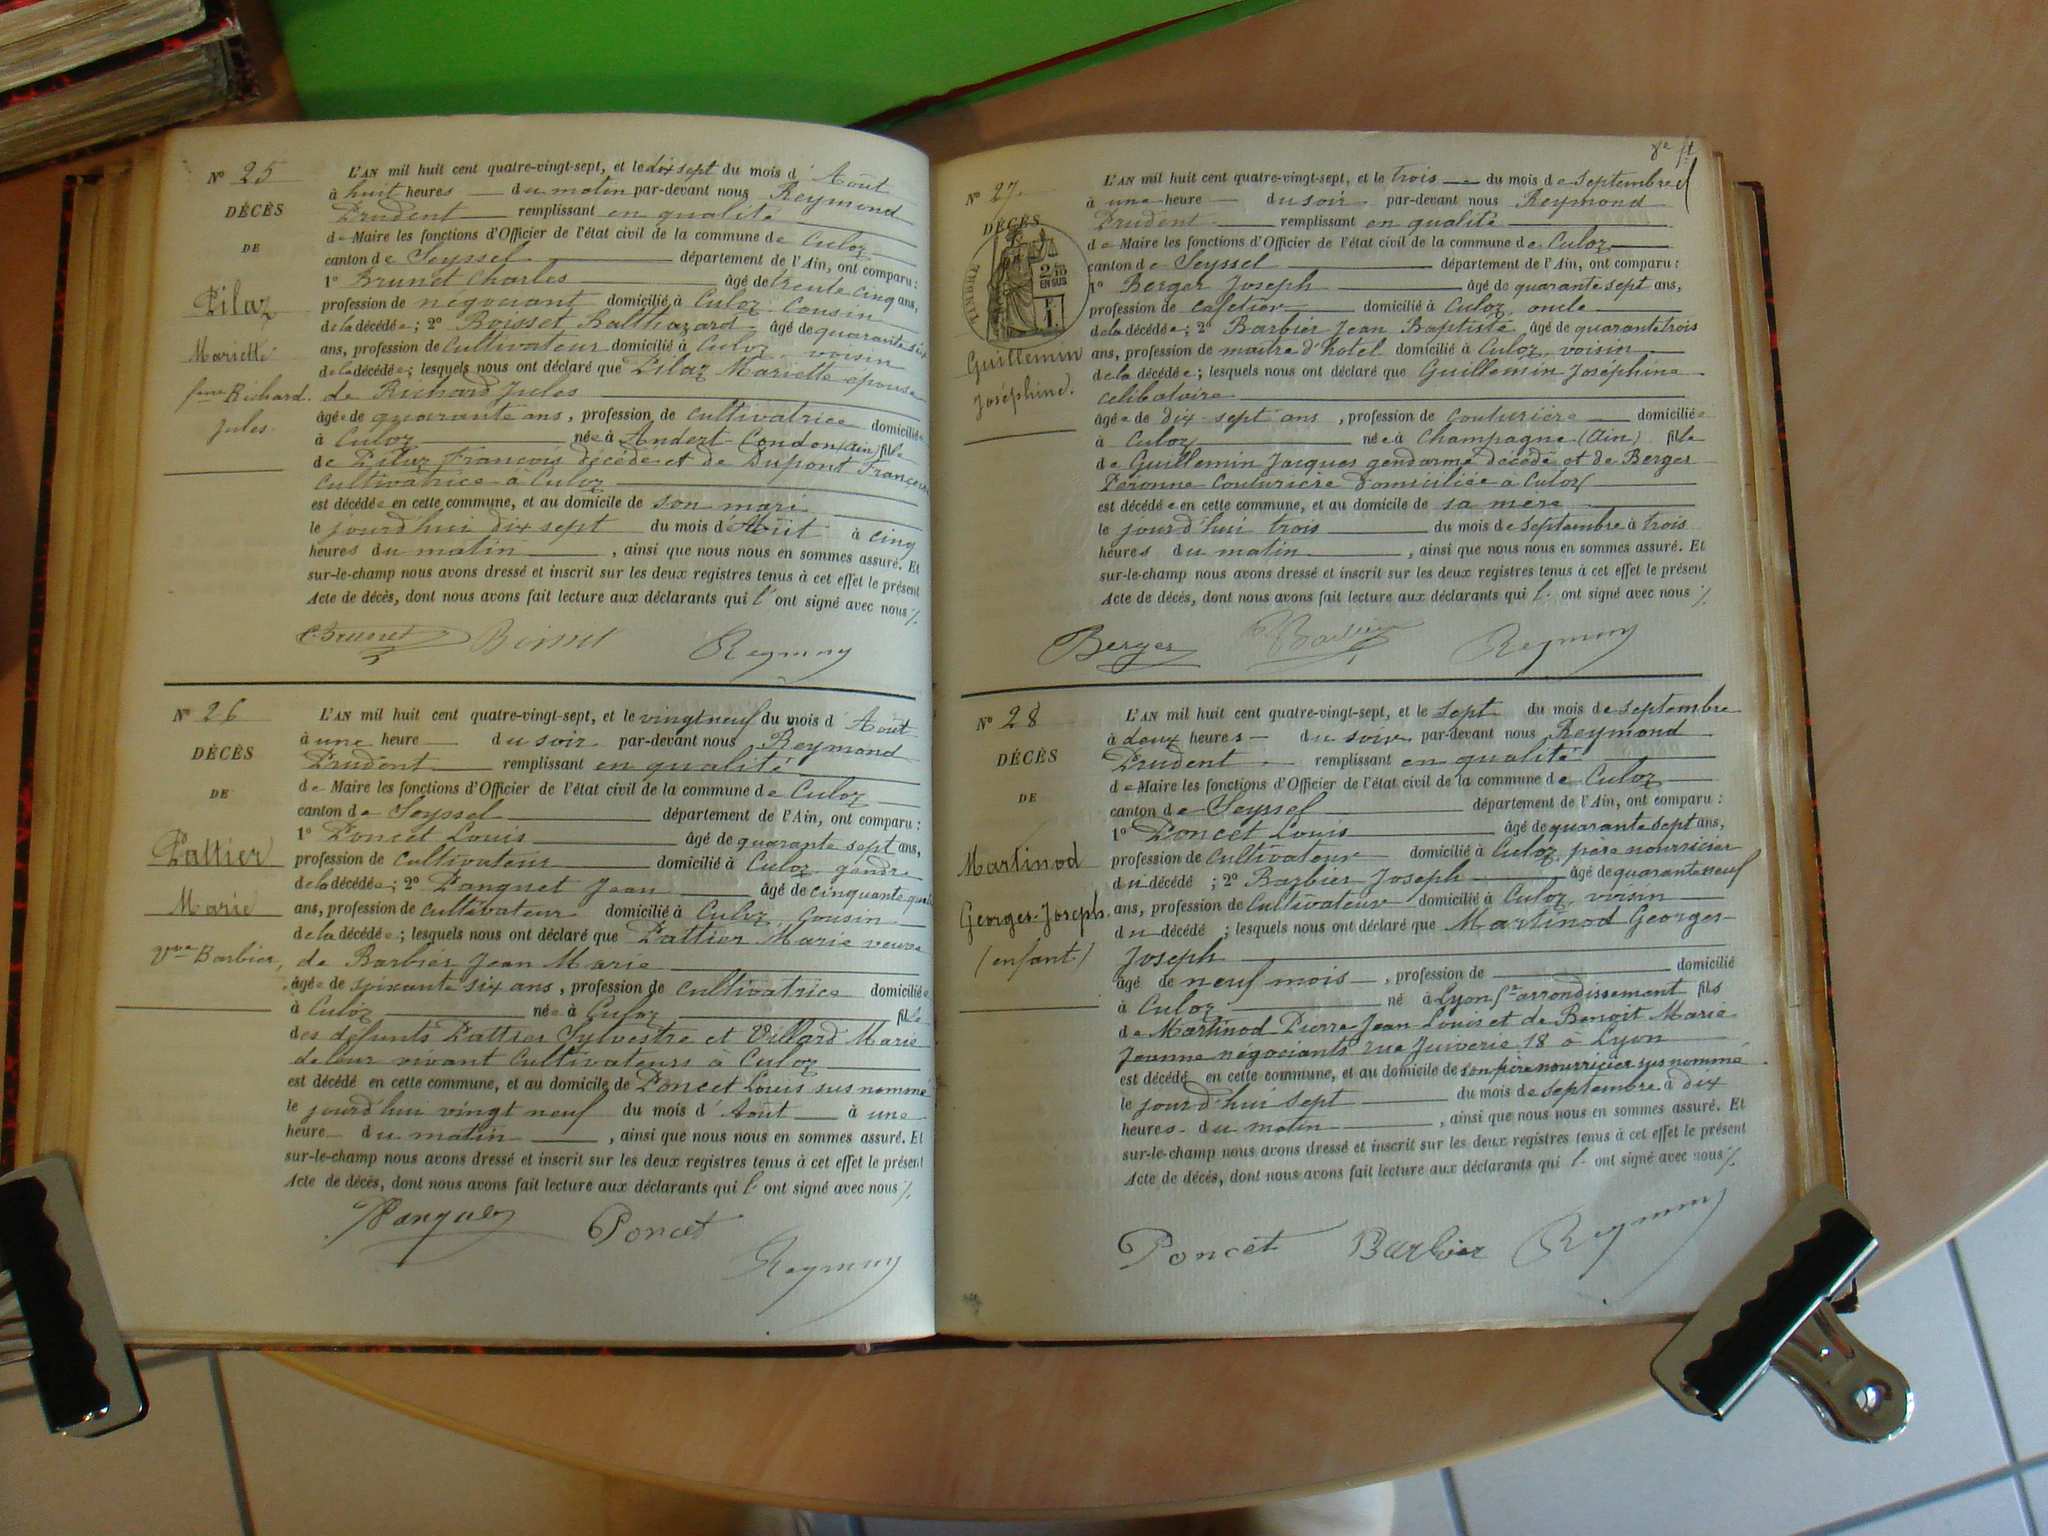 N° 25
DÉCÈS
DE
Pilaz
Mariette
fme Richard
Jules
L'AN mil huit cent quatre-vingt-sept, et le dix sept du mois d'Août
à huit heures du matin par-devant nous Reymond
Prudent remplissant en qualité
de Maire les fonctions d'Officier de l'état civil de la commune de Culoz
canton de Seyssel département de l'Ain, ont comparu :
1° Brunet Charles âgé de trente cinq ans,
profession de négociant domicilié à Culoz cousin
de la décédée ; 2° Boisset Balthazard âgé de quarante six
ans, profession de cultivateur domicilié à Culoz voisin
de la décédée ; lesquels nous ont déclaré que Pilaz Mariette épouse
de Richard Jules
âgée de quarante ans, profession de cultivatrice domiciliée
à Culoz née à Andert-Condon (Ain) fille
de Pilaz François décédé et de Dupont Françoise
cultivatrice à Culoz
est décédée en cette commune, et au domicile de son mari
le jourd'hui dix sept du mois d'Août à cinq
heures du matin , ainsi que nous nous en sommes assuré. Et
sur-le-champ nous avons dressé et inscrit sur les deux registres tenus à cet effet le présent
Acte de décès, dont nous avons fait lecture aux déclarants qui l' ont signé avec nous
C. Brunet Boisset Reymond
N° 26
DÉCÈS
DE
Pattier
Marie
Vve Barbier,
L'AN mil huit cent quatre-vingt-sept, et le vingt neuf du mois d'Août
à une heure du soir par-devant nous Reymond
Prudent remplissant en qualité
de Maire les fonctions d'Officier de l'état civil de la commune de Culoz
canton de Seyssel département de l'Ain, ont comparu :
1° Poncet Louis âgé de quarante sept ans,
profession de cultivateur domicilié à Culoz gendre
de la décédée ; 2° Panguet Jean âgé de cinquante quatre
ans, profession de cultivateur domicilié à Culoz, Cousin
de la décédée ; lesquels nous ont déclaré que Pattier Marie veuve
de Barbier Jean Marie
âgée de soixante six ans, profession de cultivatrice domiciliée
à Culoz née à Culoz fille
des défunts Pattier Sylvestre et Villard Marie
de leur vivant cultivateurs à Culoz
est décédé en cette commune, et au domicile de Poncet Louis sus nommé
le jourd'hui vingt neuf du mois d'Août à une
heure du matin , ainsi que nous nous en sommes assuré. Et
sur-le-champ nous avons dressé et inscrit sur les deux registres tenus à cet effet le présent
Acte de décès, dont nous avons fait lecture aux déclarants qui l' ont signé avec nous
Poncet
Reymond
8e
N° 27
DÉCÈS
TIMBRE
2/10
EN SUS
Guillemin
Joséphine.
L'AN mil huit cent quatre-vingt-sept, et le trois du mois de septembre
à une heure du soir par-devant nous Reymond
Prudent remplissant en qualité
de Maire les fonctions d'Officier de l'état civil de la commune de Culoz
canton de Seyssel département de l'Ain, ont comparu :
1° Berger Joseph âgé de quarante sept ans,
profession de cafetier domicilié à Culoz, oncle
de la décédée ; 2° Barbier Jean Baptiste âgé de quarante trois
ans, profession de maître d'hôtel domicilié à Culoz, voisin
de la décédée ; lesquels nous ont déclaré que Guillemin Joséphine
célibataire
âgée de dix-sept ans , profession de couturière domiciliée
à Culoz née à Champagne (Ain) fille
de Guillemin Jacques gendarme décédé et de Berger
Péronne couturière domiciliée à Culoz
est décédée en cette commune, et au domicile de sa mère
le jourd'hui trois du mois de septembre à trois
heures du matin , ainsi que nous nous en sommes assuré. Et
sur-le-champ nous avons dressé et inscrit sur les deux registres tenus à cet effet le présent
Acte de décès, dont nous avons fait lecture aux déclarants qui l' ont signé avec nous
Berger Barbier Reymond
N° 28
DÉCÈS
DE
Martinod
Georges-Joseph.
(enfant)
L'AN mil huit cent quatre-vingt-sept, et le sept du mois de septembre
à deux heures du soir par-devant nous Reymond
Prudent remplissant en qualité
de Maire les fonctions d'Officier de l'état civil de la commune de Culoz
canton de Seyssel département de l'Ain, ont comparu :
1° Poncet Louis âgé de quarante sept ans,
profession de cultivateur domicilié à Culoz, père nourricier
du décédé ; 2° Barbier Joseph âgé de quarante neuf
ans, profession de cultivateur domicilié à Culoz, voisin
du décédé ; lesquels nous ont déclaré que Martinod Georges-
Joseph
âgé de neuf mois , profession de domicilié
à Culoz né à Lyon arrondissement fils
de Martinod Pierre Jean-Louis et de Benoit Marie
Jeanne négociants rue Juiverie 18 à Lyon
est décédé en cette commune, et au domicile de son père nourricier sus nommé
le jourd'hui sept du mois de septembre à dix
heures du matin , ainsi que nous nous en sommes assuré. Et
sur-le-champ nous avons dressé et inscrit sur les deux registres tenus à cet effet le présent
Acte de décès, dont nous avons fait lecture aux déclarants qui l' ont signé avec nous
Poncet Barbier Reymond